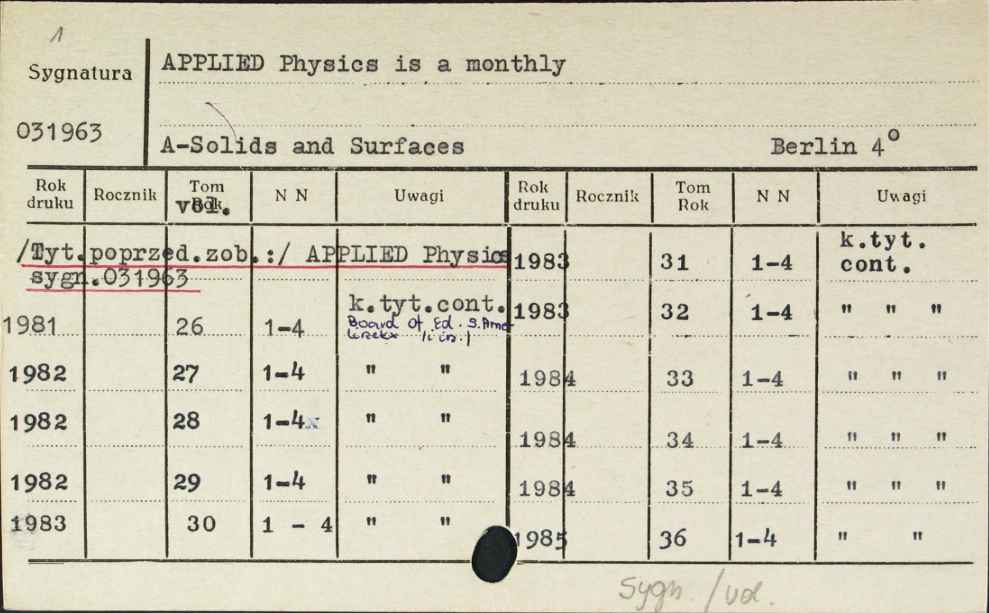 1
Sygnatura
031963
APPLIED Physics is a monthly
A-Solids and Surfaces Berlin 4°
Rok druku Rocznik Tom Rok vol. N N Uwagi Rok druku Rocznik Tom Rok N N Uwagi
/Tyt.poprzed.zob.:/ APPLIED Physics
sygn.031963
k.tyt.cont.
1981 26 1-4 Board of Ed. S.Ame-
1982 27 1-4 " "
1982 28 1-4x " "
1982 29 1-4 " "
1983 30 1 - 4 " "
1983 31 1-4 k.tyt. cont.
1983 32 1-4 " " "
1984 33 1-4 " " "
1984 34 1-4 " " "
1984 35 1-4 " " "
1985 36 1-4 " "
Sygn. /vol.